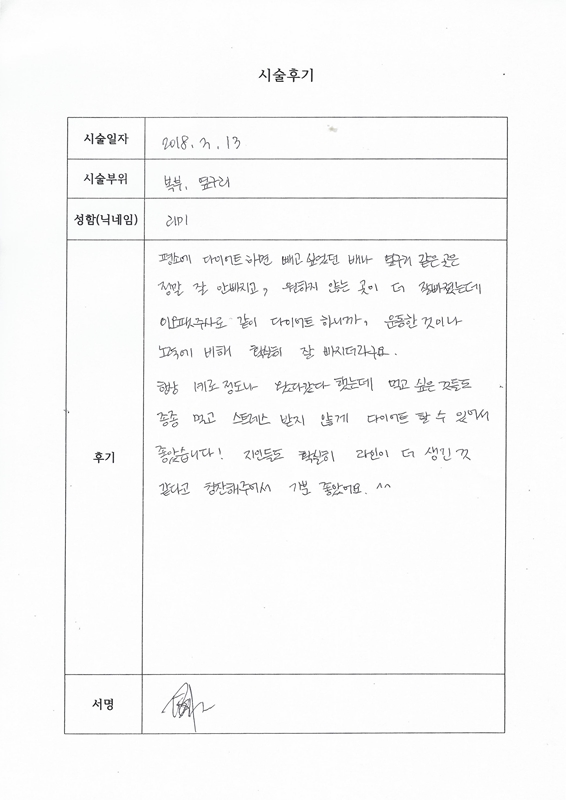 시술후기
시술일자 2018. 3. 13
시술부위 복부, 옆구리
성함(닉네임) 리미
후기
평소에 다이어트하면 빼고 싶었던 배나 옆구리 같은 곳은
정말 잘 안빠지고, 원하지 않는 곳이 더 잘빠졌는데
주사로 같이 다이어트 하니까, 운동한 것이나
노력에 비해 확실히 잘 빠지더라구요.
항상 1키로 정도나 왔다갔다 했는데 먹고 싶은 것들도
종종 먹고 스트레스 받지 않게 다이어트 할 수 있어서
좋았습니다! 지인들도 확실히 라인이 더 생긴 것
같다고 칭찬해주어서 기분 좋았어요. ^^
서명